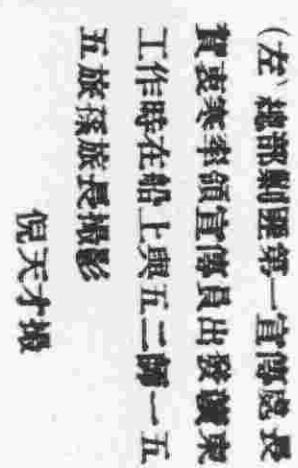 （左）總部剿匪第一宣傳處長
賀衷寒率領宣傳員出發贛東
工作時在船上與五二師一五
五旅孫旅長攝影
倪天才攝